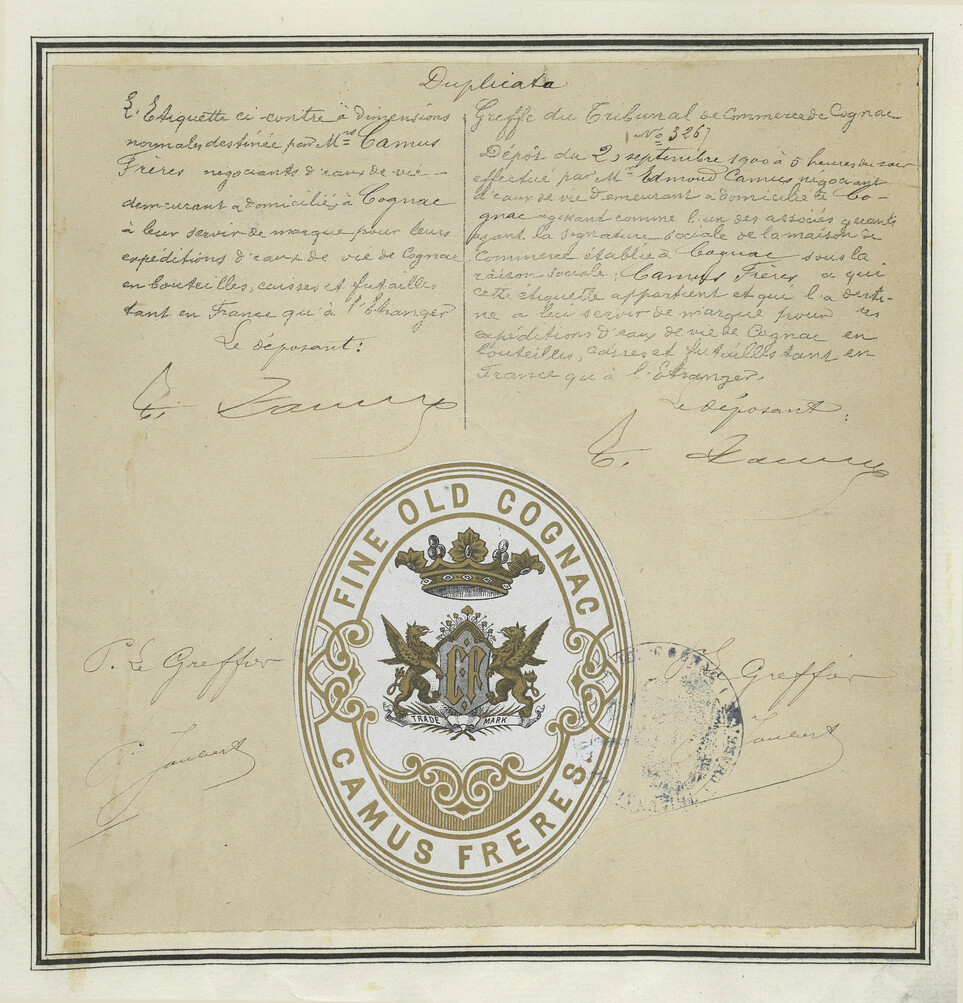 Duplicata
L'Etiquette ci-contre à dimensions
normales destinée par Mrs Camus
Frères negociants d'eaux de vie
demeurant & domiciliés à Cognac
à leur servir de marque pour leurs
expéditions d'eaux de vie de Cognac
en bouteilles, caisses et futailles
tant en France qu'à l'Etranger
Le déposant:
E. Camus
Greffe du Tribunal de Commerce de Cognac
No 3267
Dépôt du 2 septembre 1900 à 5 heures du soir
effectué par Mr Edmond Camus négociant
d'eaux de vie demeurant & domicilié à Co-
gnac agissant comme l'un des associés gérants
ayant la signature sociale de la maison de
Commerce établie à Cognac sous la
raison sociale Camus Frères à qui
cette étiquette appartient et qui l'a desti-
né a leur servir de marque pour les
expéditions d'eaux de vie de Cognac en
bouteilles, caisses et futailles tant en
France qu'à l'Etranger.
Le déposant:
E. Camus
FINE OLD COGNAC
TRADE MARK
CAMUS FRERES
P. Le Greffier
Joubert
P. Le Greffier
Joubert